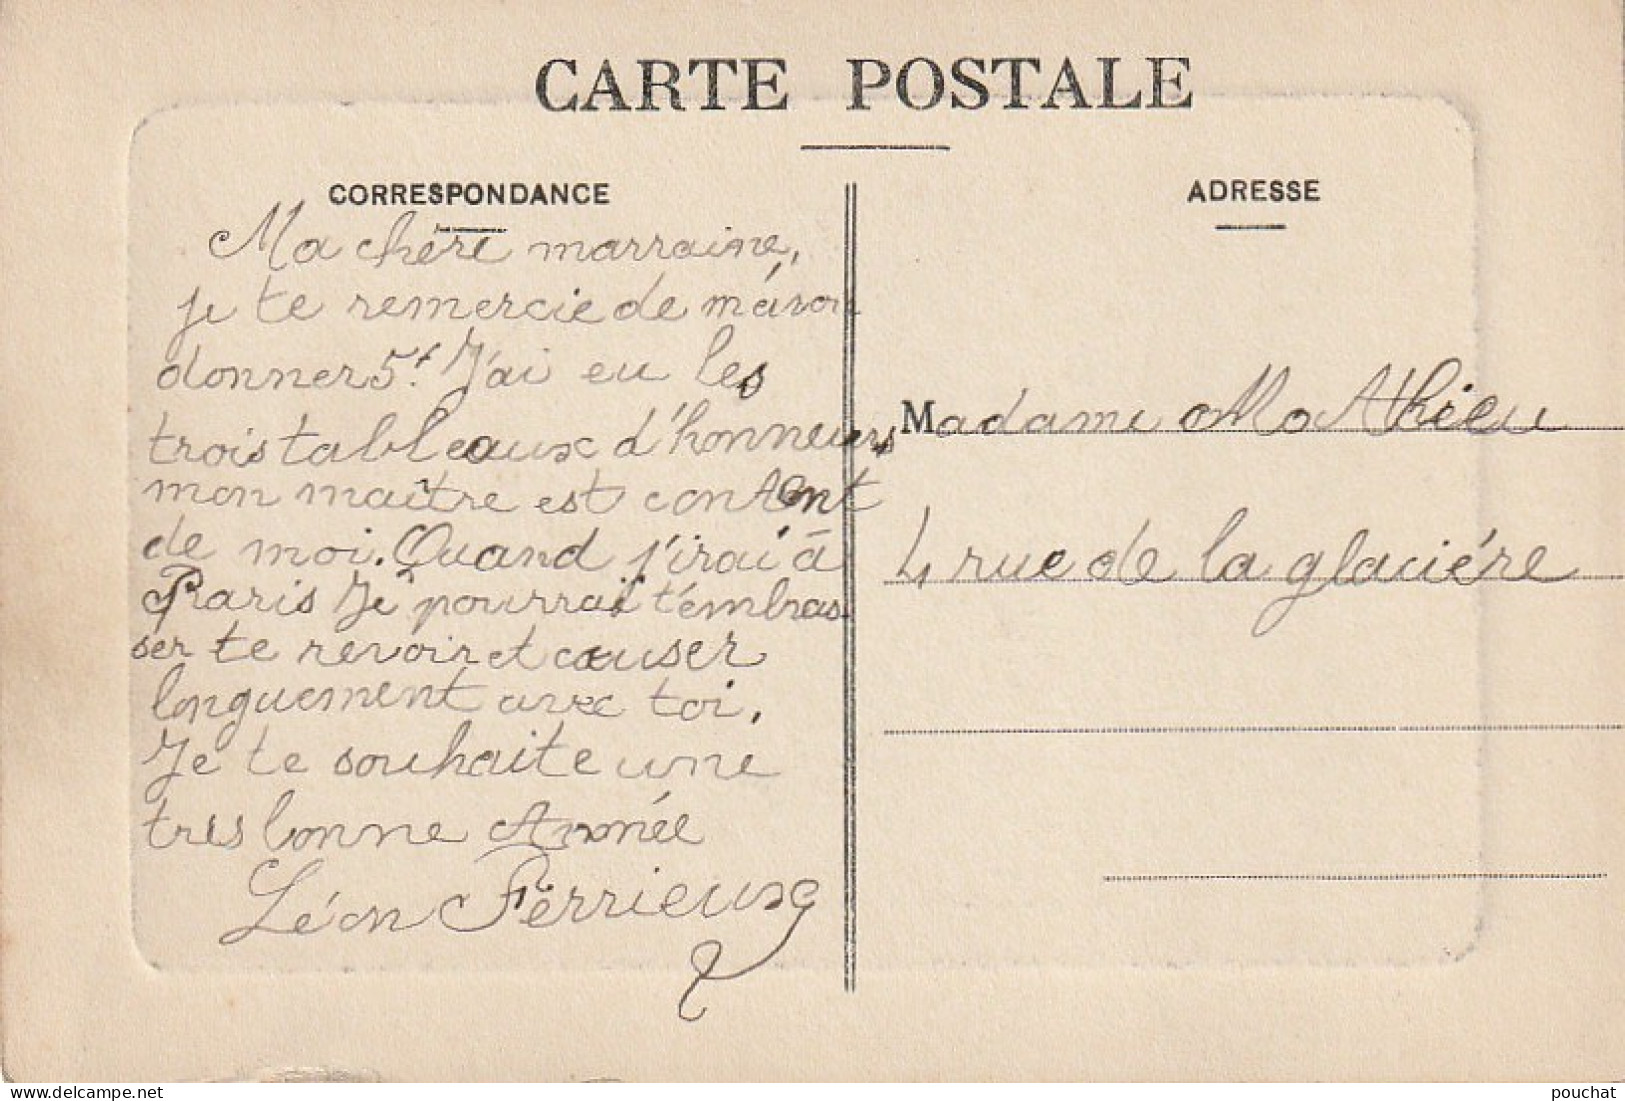 CARTE POSTALE
CORRESPONDANCE
Ma chère marraine,
je te remercie de m'avoir
donner 5f. J'ai eu les
trois tableaux d'honneurs
mon maître est content
de moi. Quand j'irai à
Paris Je pourrai t'embras
ser te revoir et causer
longuement avec toi.
Je te souhaite une
tres bonne Année
Léon Perrieux
ADRESSE
Madame Mathieu
4 rue de la glaciére
delcampe.net
pouchat